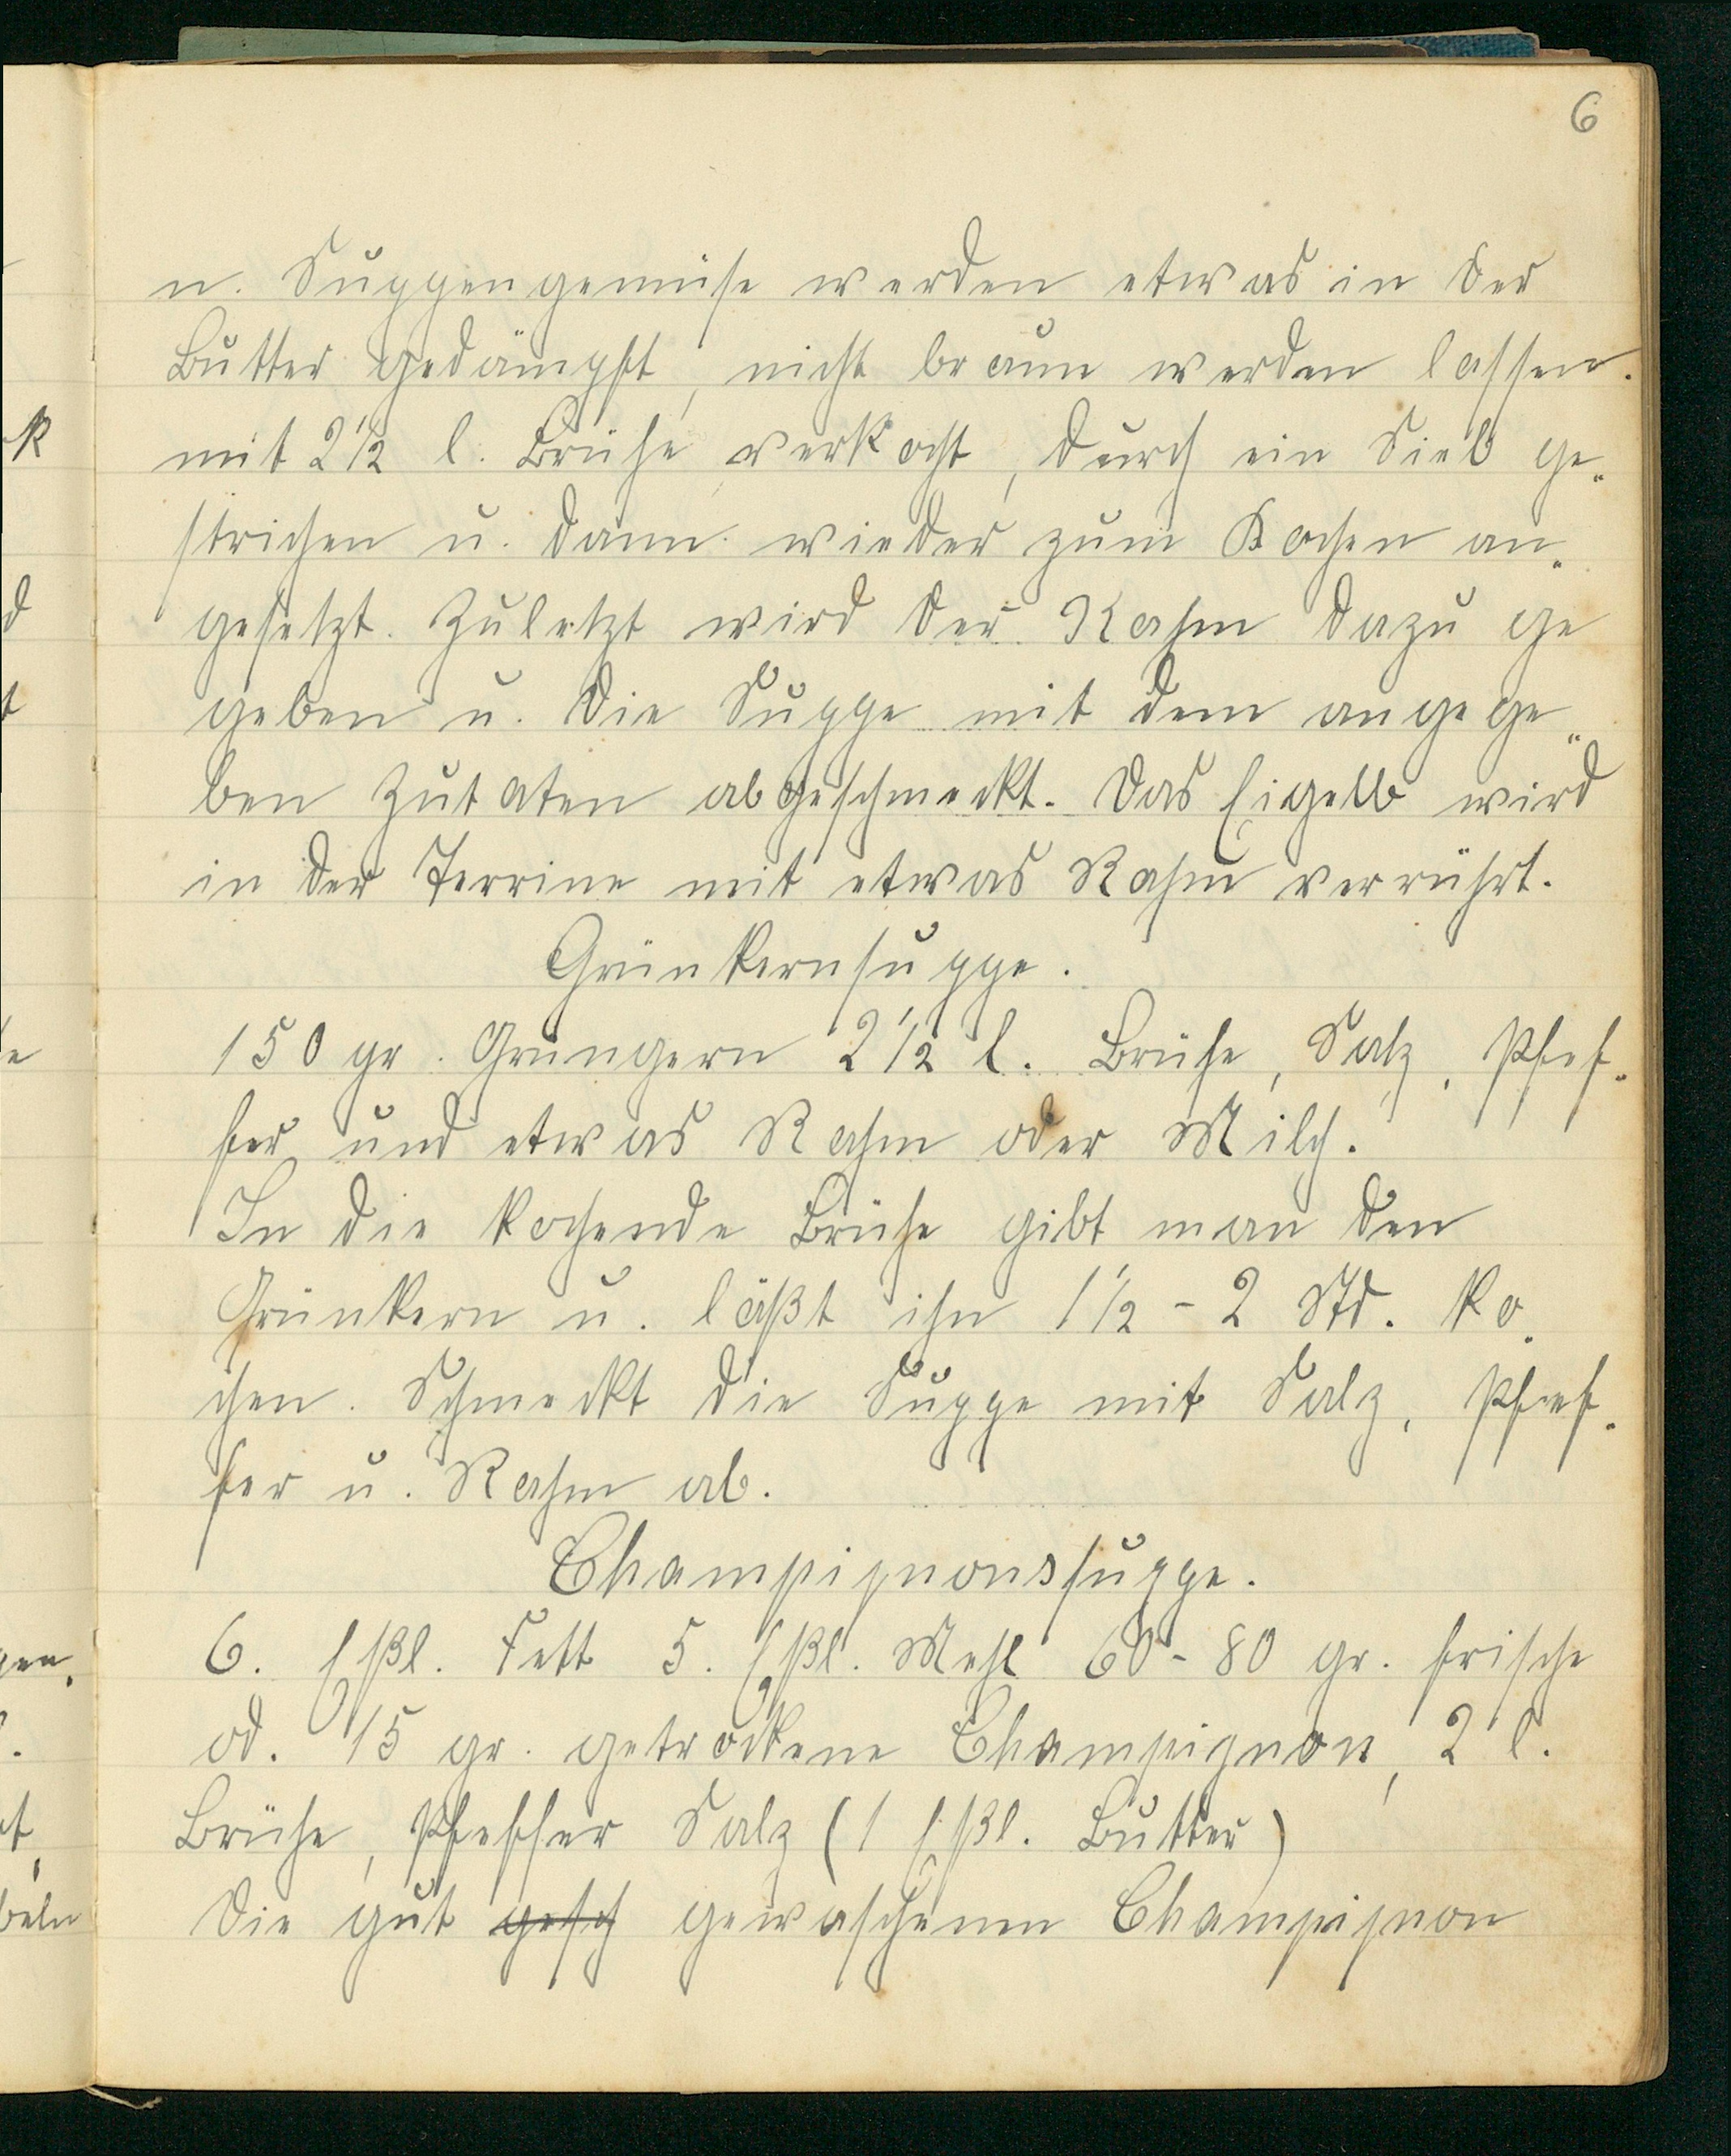 6
n. Suppengemüse werden etwas in der
Butter gedämpft, nicht braun werden lassen.
mit 2 1/2 l. Brühe verkocht, durch ein Sieb ge-
strichen u. dann wieder zum Kochen an-
gesetzt. Zuletzt wird der Rahm dazu ge
geben u. die Suppe mit dem angege-
ben Zutaten abgeschmeckt. Das Eigelb wird
in der Terrine mit etwas Rahm verrührt.
Grünkernsuppe.
150 gr. Grüngern 2 1/2 l. Brühe, Salz, Pfef-
fer und etwas Rahm oder Milch.
In die kochende Brühe gibt man den
Grünkern u. läßt ihn 1 1/2 - 2 Std. ko-
chen. Schmeckt die Suppe mit Salz, Pfef-
fer u. Rahm ab.
Champignonssuppe.
6. Eßl. Fett 5. Eßl. Mehl 60 - 80 gr. frische
od. 15 gr. getrockene Champignon, 2 l.
Brühe, Pfeffer Salz (1 Eßl. Butter)
Die gut gesch gewaschenen Champignon